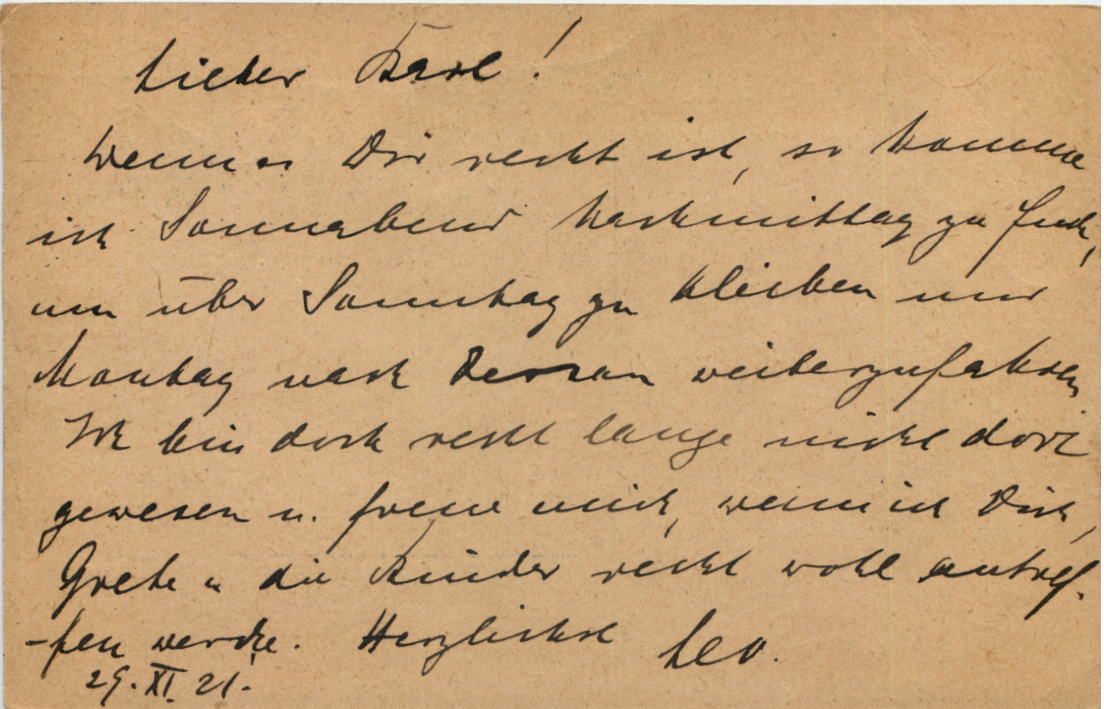 Lieber Karl!
Wenn es Dir recht ist, so komme
ich Sonnabend Nachmittag zu Euch,
um über Sonntag zu bleiben und
Montag nach Dessau weiterzufahren
Ich bin doch recht lange nicht dort
gewesen u. freue mich, wenn ich Dich,
Grete u die Kinder recht wohl antref-
-fen werde. Herzlichst Leo.
29. XI. 21.